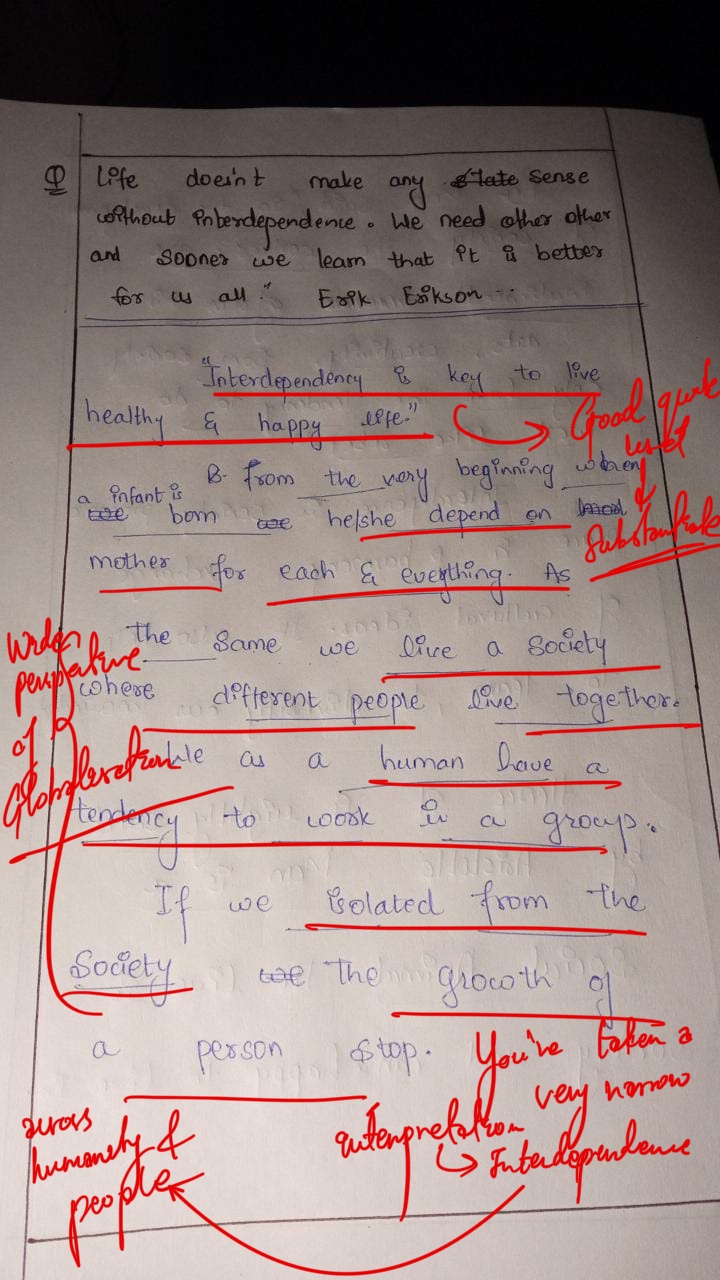 Q Life doesn't make any state sense
without interdependence. We need other other
and sooner we learn that it is better
for us all." Erik Erikson --
"Interdependency is key to live
healthy & happy life."
Good quote
used
&
Substantiate
B. from the very beginning when
a infant is
we born we he/she depend on
mother for each & eveything. As
the same we live a society
where different people live together.
We as a human have a
tendency to work in a group.
Wider
perspective
of
Globalisation
If we isolated from the
Society we the growth of
a person stop.
You've taken a
very narrow
interpretation
Interdependence
across
humanity &
people